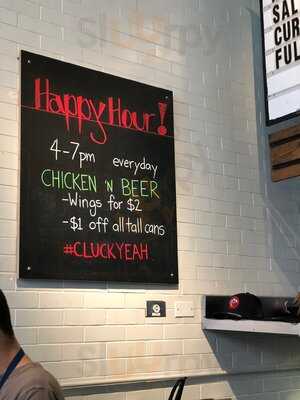 Happy Hour!
4-7pm everyday
CHICKEN 'N BEER
-Wings for $2
-$1 off all tall cans
#CLUCKYEAH
SAL
CUR
FUL